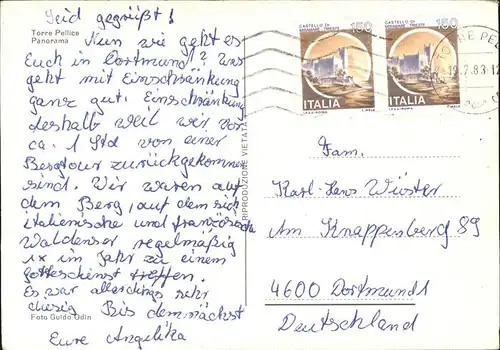 Seid gegrüßt!
Torre Pellice
Panorama
Nun wie geht es
Euch in Dortmund? Uns
geht mit Einschränkung
ganz gut. Einschränkung
deshalb weil wir vor
ca. 1 Std von einer
Bergtour zurückgekommen
sind. Wir waren auf
dem Berg, auf dem sich
italienische und französische
Waldenser regelmäßig
1x im Jahr zu einem
Gottesdienst treffen.
Es war allerdings sehr
diesig Bis demnächst
Foto Guido Odin
Eure Angelika
RIPRODUZIONE VIETATA
CASTELLO DI
MIRAMARE TRIESTE
150
ITALIA
I.P.Z.S. ROMA
CASTELLO DI
MIRAMARE TRIESTE
150
ITALIA
I.P.Z.S. ROMA
TORRE PE
19.7.83-12
Fam.
Karl-Hans Wüster
Am Knappenberg 89
4600 Dortmund 1
Deutschland